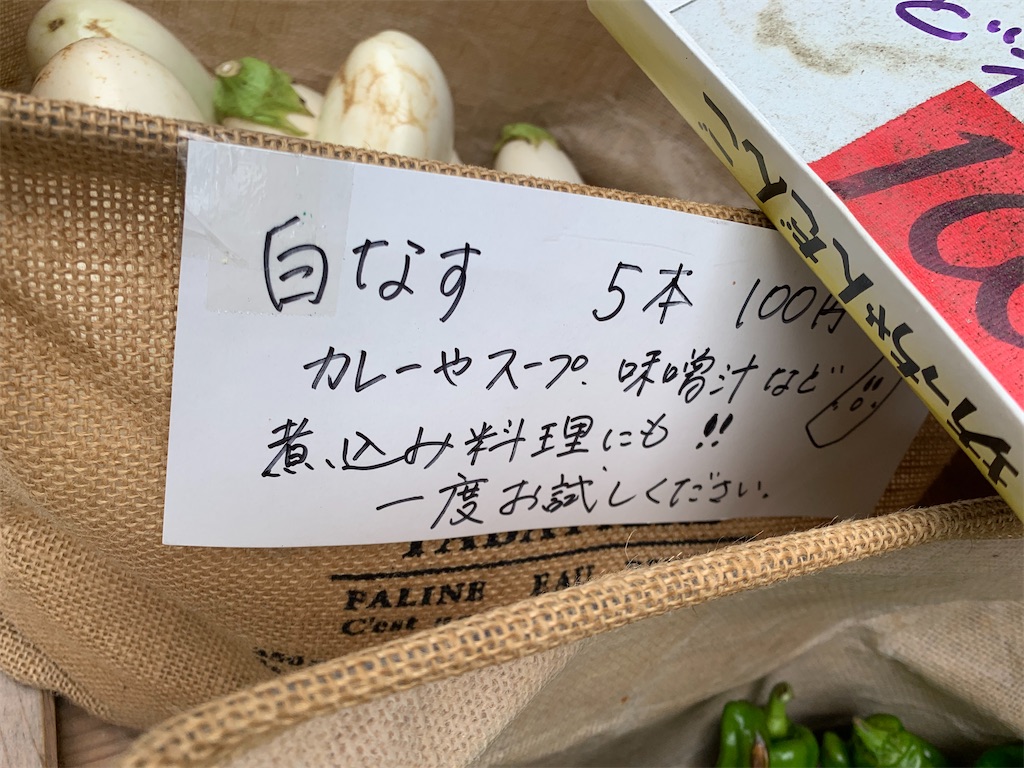 白なす 5本 100円
カレーやスープ、味噌汁など
煮込み料理にも!!
一度お試しください。
FALINE EAU
C'est
100